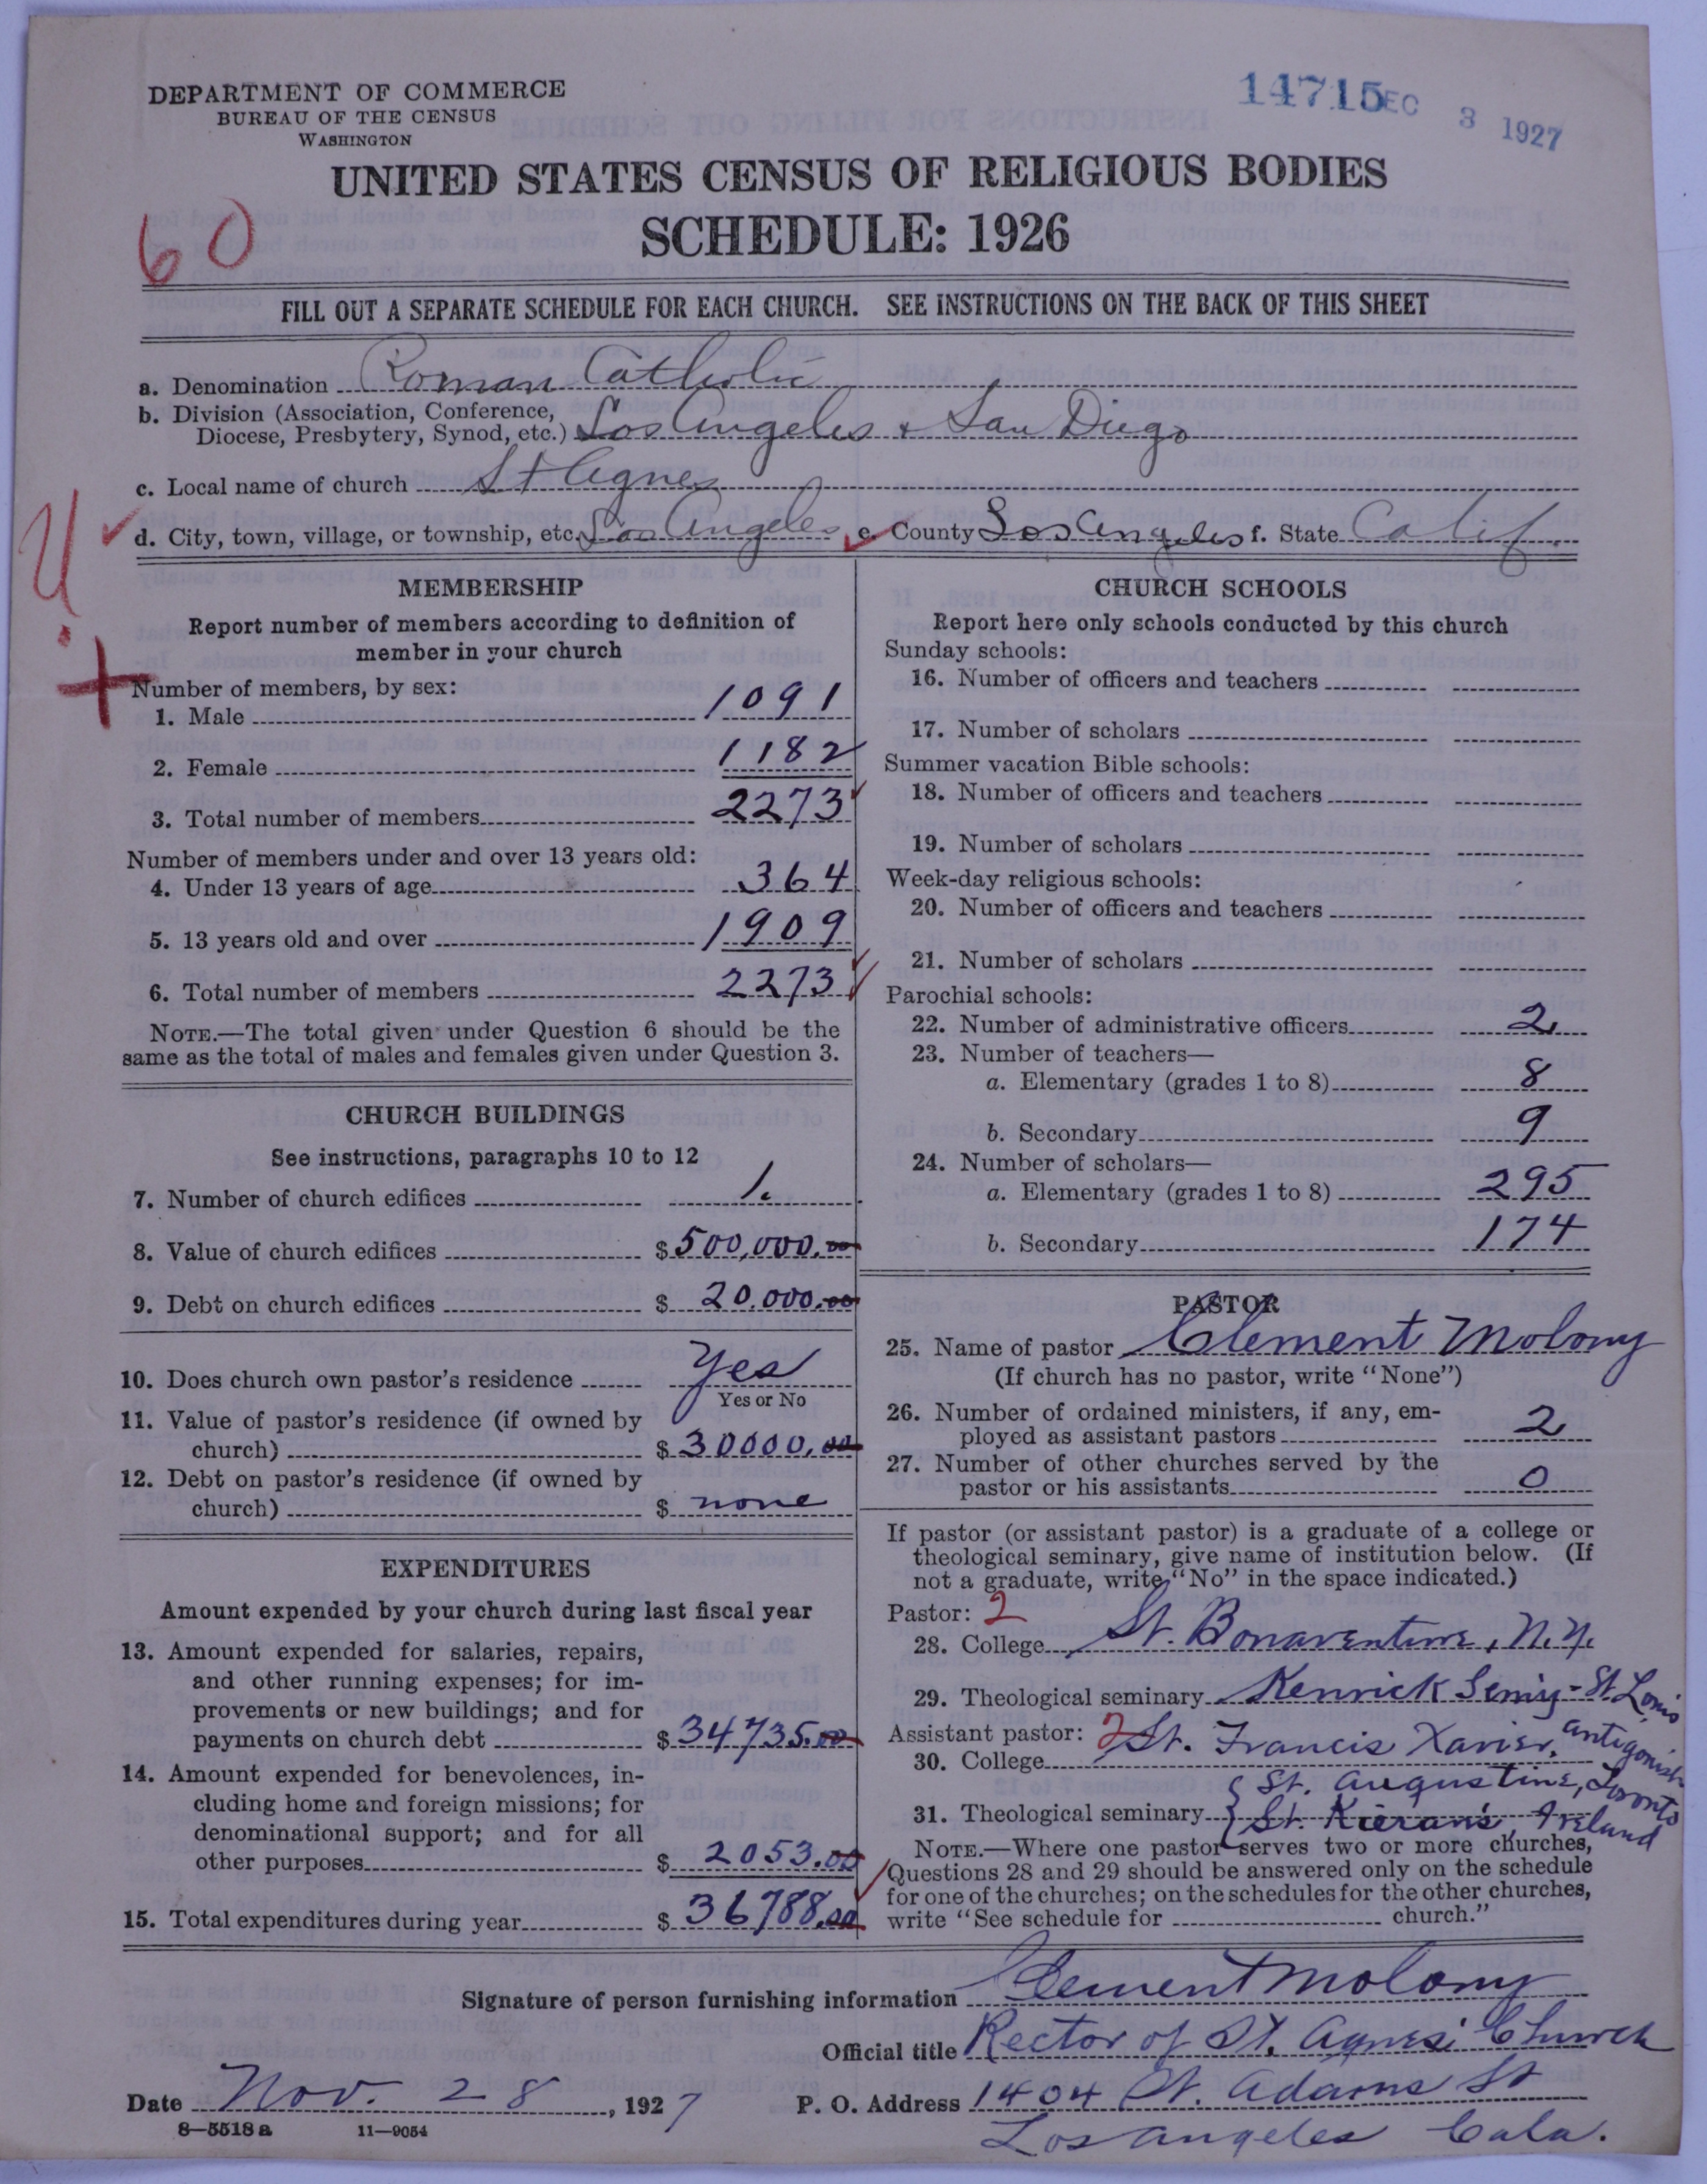 DEPARTMENT OF COMMERCE
BUREAU OF THE CENSUS
WASHINGTON
14715 EC 3 1927
UNITED STATES CENSUS OF RELIGIOUS BODIES
SCHEDULE: 1926
60
FILL OUT A SEPARATE SCHEDULE FOR EACH CHURCH. SEE INSTRUCTIONS ON THE BACK OF THIS SHEET
a. Denomination Roman Catholic
b. Division (Association, Conference,
Diocese, Presbytery, Synod, etc.) Los Angeles + San Diego
c. Local name of church St Agnes
d. City, town, village, or township, etc. Los Angeles e. County Los Angeles f. State Calif.
MEMBERSHIP
Report number of members according to definition of
member in your church
Number of members, by sex:
1. Male 1091
2. Female 1182
3. Total number of members 2273
Number of members under and over 13 years old:
4. Under 13 years of age 364
5. 13 years old and over 1909
6. Total number of members 2273
NOTE.—The total given under Question 6 should be the
same as the total of males and females given under Question 3.
CHURCH BUILDINGS
See instructions, paragraphs 10 to 12
7. Number of church edifices 1.
8. Value of church edifices $ 500,000.00
9. Debt on church edifices $ 20.000.00
10. Does church own pastor's residence Yes
Yes or No
11. Value of pastor's residence (if owned by
church) $ 30000.00
12. Debt on pastor's residence (if owned by
church) $ none
EXPENDITURES
Amount expended by your church during last fiscal year
13. Amount expended for salaries, repairs,
and other running expenses; for im-
provements or new buildings; and for
payments on church debt $ 34735.00
14. Amount expended for benevolences, in-
cluding home and foreign missions; for
denominational support; and for all
other purposes $ 2053.00
15. Total expenditures during year $ 36788.00
CHURCH SCHOOLS
Report here only schools conducted by this church
Sunday schools:
16. Number of officers and teachers
17. Number of scholars
Summer vacation Bible schools:
18. Number of officers and teachers
19. Number of scholars
Week-day religious schools:
20. Number of officers and teachers
21. Number of scholars
Parochial schools:
22. Number of administrative officers 2
23. Number of teachers—
a. Elementary (grades 1 to 8) 8
b. Secondary 9
24. Number of scholars—
a. Elementary (grades 1 to 8) 295
b. Secondary 174
PASTOR
25. Name of pastor Clement Molony
(If church has no pastor, write "None")
26. Number of ordained ministers, if any, em-
ployed as assistant pastors 2
27. Number of other churches served by the
pastor or his assistants 0
If pastor (or assistant pastor) is a graduate of a college or
theological seminary, give name of institution below. (If
not a graduate, write "No" in the space indicated.)
Pastor: 2
28. College St. Bonaventure, N.Y.
29. Theological seminary Kenrick Seminy - St. Louis
Assistant pastor: 2
30. College St. Francis Xavier, Antigonish
St. Augustine, Toronto
31. Theological seminary St. Kieran's, Ireland
NOTE.—Where one pastor serves two or more churches,
Questions 28 and 29 should be answered only on the schedule
for one of the churches; on the schedules for the other churches,
write "See schedule for church."
Signature of person furnishing information Clement Molony
Official title Rector of St. Agnes' Church
Date Nov. 28, 1927 P. O. Address 1404 St. Adams St
Los Angeles Cala.
8—5518 a 11—9054